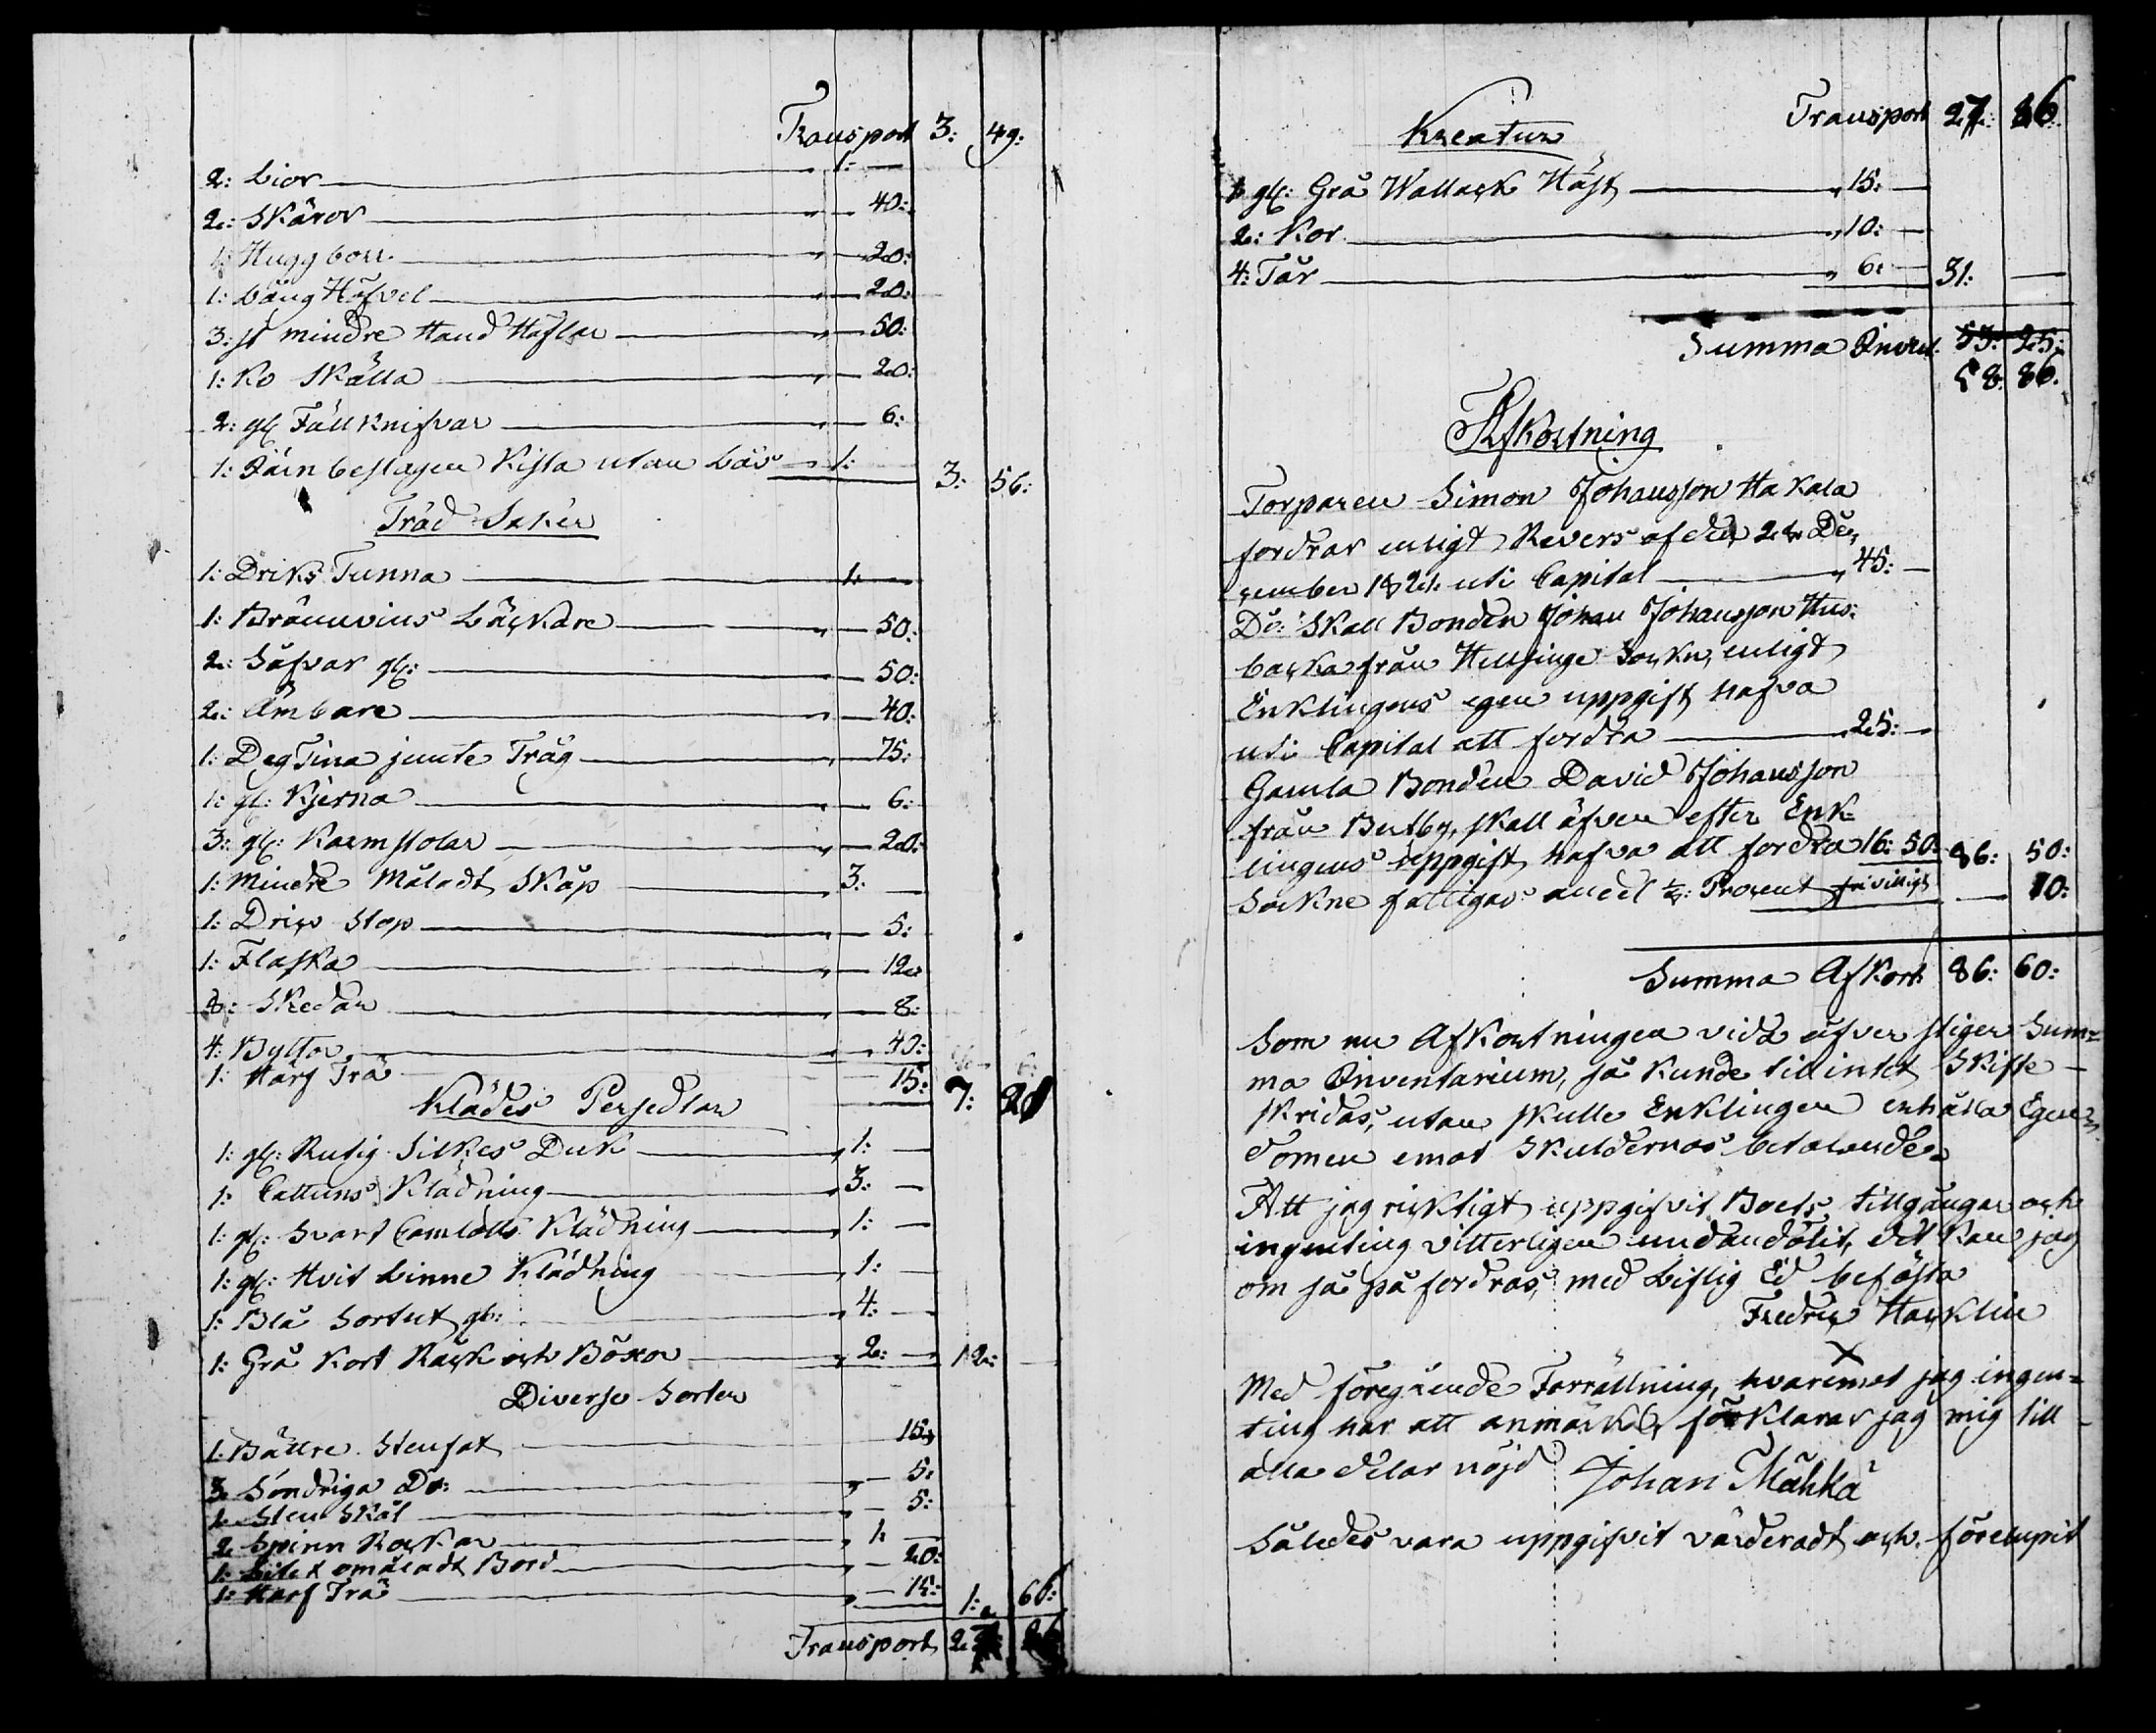 Transport 3: 49:
2: Lior 1: —
2: Skäror " — 40:
1: Huggborr " — 20:
1: Lång Höfvel " — 20:
3: st mindre Hand Höflar " — 50:
1: Ko Skälla " — 20:
2: gl Fällknifvar " — 6:
1: Järn beslagen Kista utan Lås " 1: — 3: 56:
Träd Saker
1: Driks Tunna 1: —
1: Brännvins Läckare " — 50:
2: Såfvar gl: — 50:
2: Ämbare " — 40:
1: DegTina jemte Tråg " — 75:
1: gl: Kjerna " — 6:
3: gl: Karmstolar " — 20:
1: Mindre Måladt Skåp 3: —
1: Dric Stop " — 5:
1: Flaska " — 12
8: Skedar " — 8:
4: Byttor " 40:
1: Harf Trä 15: 7: 21
Klädes Persedlar
1: gl: Rutig Silkes Duk " 1: —
1: Cattuns Klädning " 3: —
1: gl: Svart Camlotts Klädning " 1: —
1: gl: Hvit Linne Klädning " 1: —
1: Blå Sortut gl: " 4: —
1: Grå Kort Råck och Böxor " 2: — 12: —
Diverse Sorter
1: Bättre Stenfat 15
3 Söndriga Do: " — 5:
1: Sten Skål " — 5:
2 Spinn Rockar " 1: —
1: Litet omåladt Bord " — 20:
1: Harf Trä " — 15: 1: 60:
Transport 27:
Transport 27: 86.
Kreatur
1 gl: Grå Wallack Häst " 15: —
2: Kor " 10: —
4: Får " 6: — 31: —
Summa Invent. 53: 25:
58: 86.
Afkortning
Torparen Simon Johansson Hakala
fordrar enligt Revers af den 2 De,
cember 1821. uti Capital " 45: —
Do: Skall Bonden Johan Johansson Hus:
backa från Helsinge Sockn, enligt
Enklingens egen uppgift hafva
uti Capital att fordra " 25: —
Gamla Bonden David Johansson
från Butby, skall äfven efter Enk=
lingens uppgift hafva att fordra 16: 50: 86: 50:
Sockne fattigas andel ⅛: Procent frivilligt — 10:
Summa Afkort 86: 60:
Som nu Afkortningen vida öfver stiger Sum=
ma Inventarium, så kunde till intet Skifte
skridas, utan skulle Enklingen erhålla Egen=
domen emot Skuldernas betalande.
Att jag ricktigt uppgifvit Boets tillgångar och
ingenting vitterligen undandölit, det kan jag
om så på fordras, med Liflig Ed befästa
Fredric Hacklin
X
Med föregående Forrättning, hvaremot jag ingen=
ting har att anmärka, förklarar jag mig till
alla delar nöjd Johan Mahka
Således vara uppgifvit värderadt och förelupit